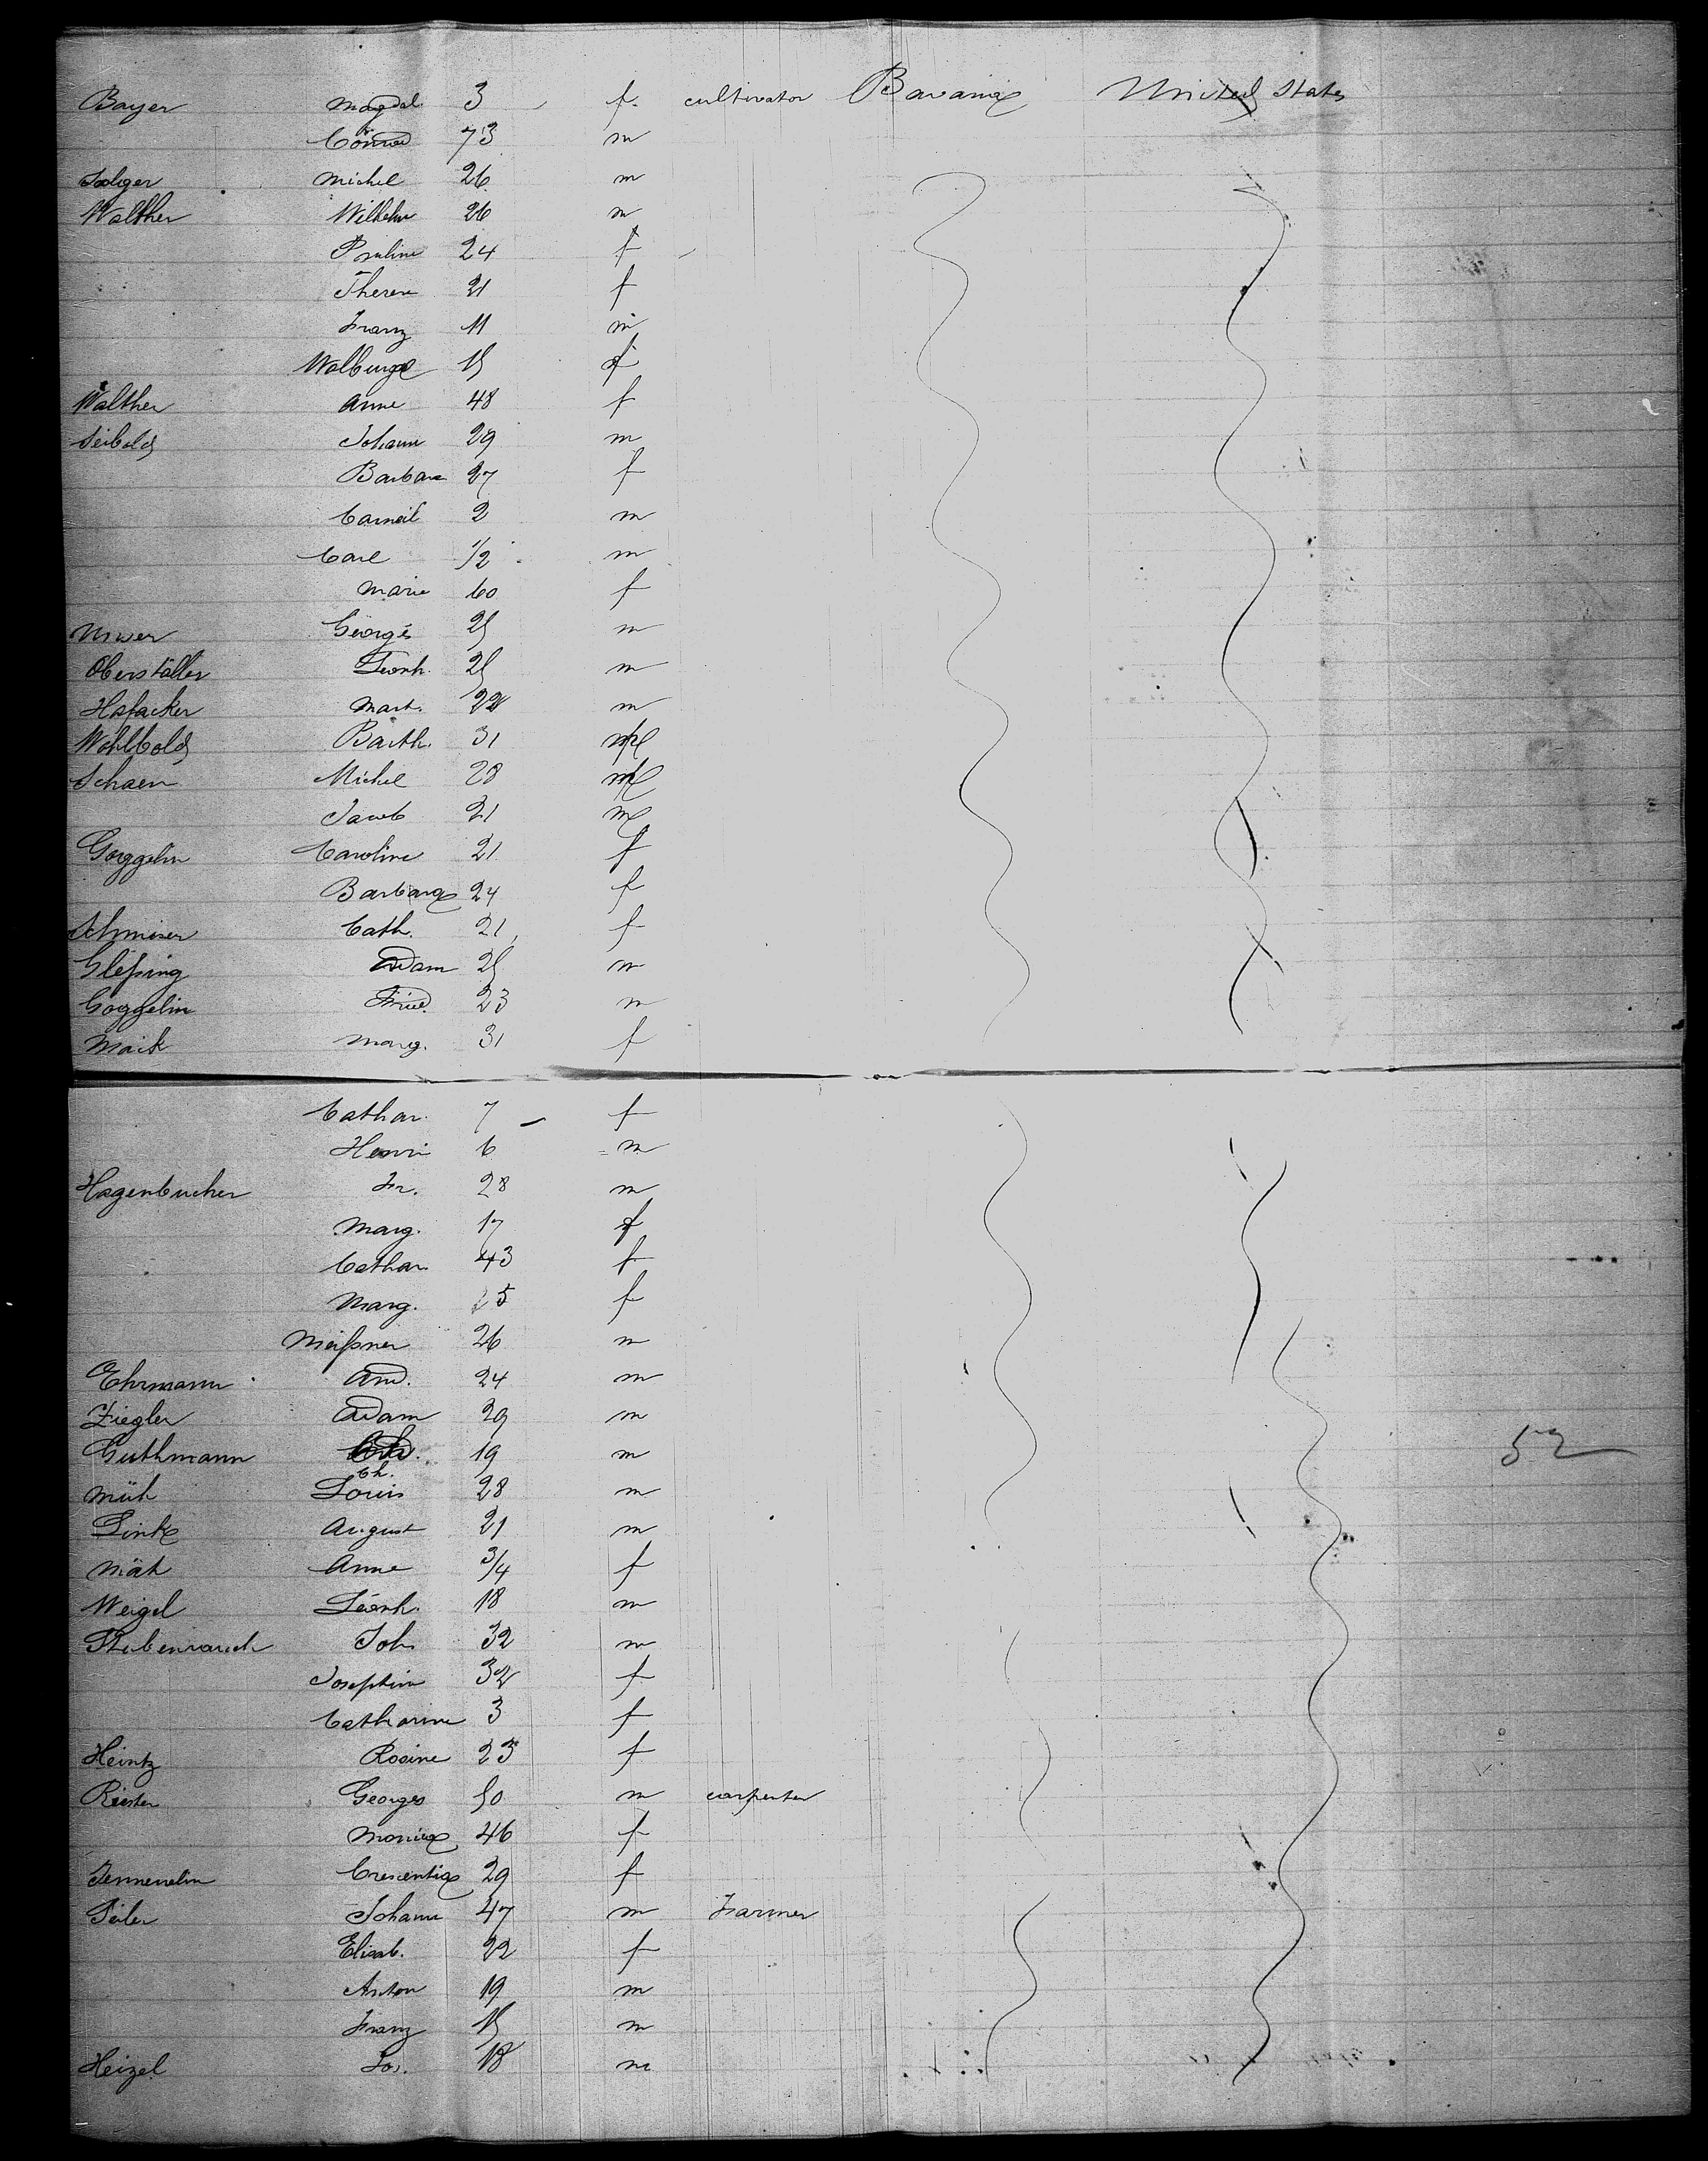 Bayer Magdal. 3 f. cultivator Bavaria United States
Conrad 73 m
Michel 26 m
Walther Wilhelm 26 m
Pauline 24 f
Therese 21 f
Franz 11 m
Walburga 15 f
Walther Anne 48 f
Seibold Johann 29 m
Barbara 27 f
2 m
Carl 1/2 m
Marie 60 f
Georges 25 m
Oberställer Leonh. 25 m
Hafacker Mart. 22 m
Wohlbold Barth. 31 m
Schaen Michel 28 m
Jacob 21 m
Goggelin Caroline 21 f
Barbara 24 f
Cath. 21 f
Gleßing Adam 25 m
Goggelin Fried. 23 m
Mack Marg. 31 f
Cathar. 7 f
Henri 6 m
Hagenbucher Fr. 28 m
Marg. 17 f
Cathar. 43 f
Marg. 25 f
Meißner 26 m
Ehrmann And. 24 m
Ziegler Adam 29 m
Guthmann 19 m 52
Ch.
Müh Louis 28 m
Link August 21 m
Mäh Anne 3/4 f
Weigel Leonh. 18 m
Stubenrauch Joh. 32 m
Josephine 32 f
Catharine 3 f
Heintz Rosine 23 f
Riester Georges 50 m carpenter
Monica 46 f
Crescentia 29 f
Seiler Johann 47 m Farmer
Elisab. 22 f
Anton 19 m
Franz 15 m
Heizel Jos. 18 m